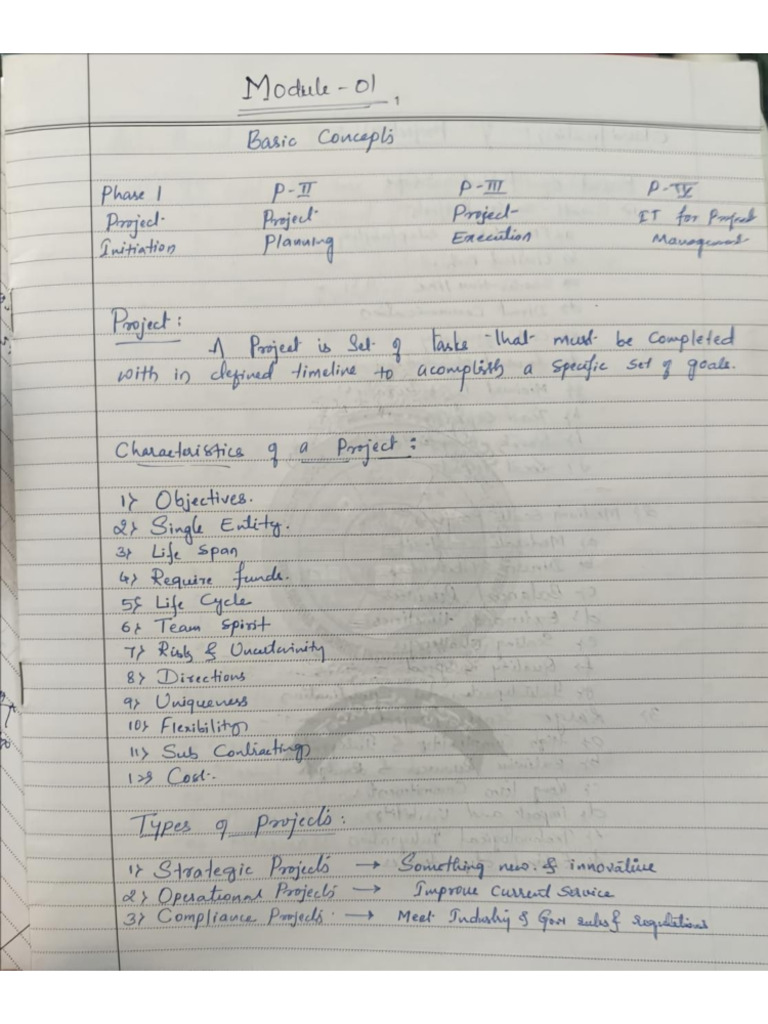 Module-01,
Basic Concepts
Phase 1 P-II P-III P-IV
Project Project Project- IT for Project
Initiation Planning Execution Management
Project:
A Project is Set of tasks that must be Completed
with in defined timeline to acomplish a specific set of goals.
Characteristics of a Project:
1) Objectives.
2) Single Entity.
3) Life Span
4) Require funds.
5) Life Cycle
6) Team Spirit
7) Risk & Uncertainity
8) Directions
9) Uniqueness
10) Flexibility
11) Sub Contracting
12) Cost.
Types of projects:
1) Strategic Projects → Something new & innovative
2) Operational Projects → Improve Current Service
3) Compliance Projects → Meet Industry & Gov rules & regulations